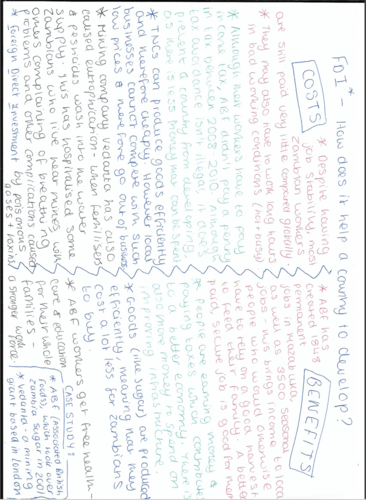 FDI* - How does it help a country to develop?
COSTS
* Despite having
job stability, most
Zambian workers
are still paid very little compared globally
* They may also have to work long hours
in bad working conditions (hot + dusty)
* Although most companies have to pay
income tax, ABF didn't pay a penny
in tax between 2008-2010 through
tax avoidance (not illegal). This is
to a country developing
as there is less money that can be spent
* TNCs can produce goods efficiently
and therefore cheaply. However local
businesses cannot compete with such
low prices & therefore go out of business
* Mining company vedanta has also
caused eutrophication - when fertilisers
& pesticides wash into the water
supply. This has hospitalised some
Zambians who live near mines with
others complaining of breathing
problems and other complications caused
by poisonous
gases + toxins
* Foreign Direct Investment
BENEFITS
* ABF has
created
permanent
jobs in Mazabuka,
as well as seasonal
jobs. This brings income to local
people who would otherwise
have to rely on a good harvest
to feed their family. A better
paid, secure job is good for morale
* People are earning money &
paying taxes which contributes
to a better economy. There is
also more money to spend on
improving infrastructure.
* Goods (like sugar) are produced
efficiently, meaning that they
cost a lot less for Zambians
to buy.
* ABF workers get free health-
care & education
for their whole
families -
a stronger work force
CASE STUDY:
* ABF (Associated British
Foods) which took over
Zambia Sugar in 2001
* Vedanta - a mining
giant based in London